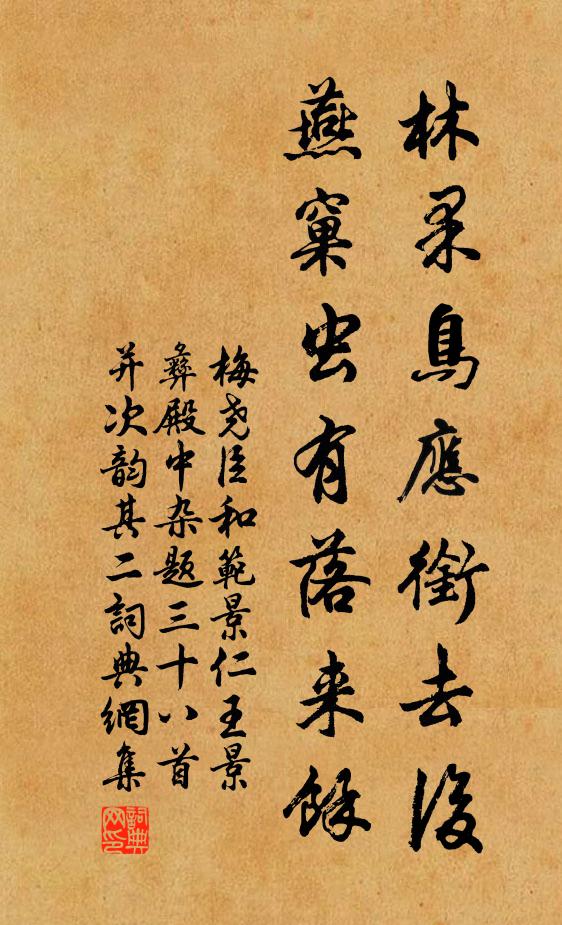 林果鳥應銜去後
燕窠虫有落来餘
梅尧臣和範景仁王景
彝殿中杂題三十八首
并次韵其二詞典網集
詞典网印